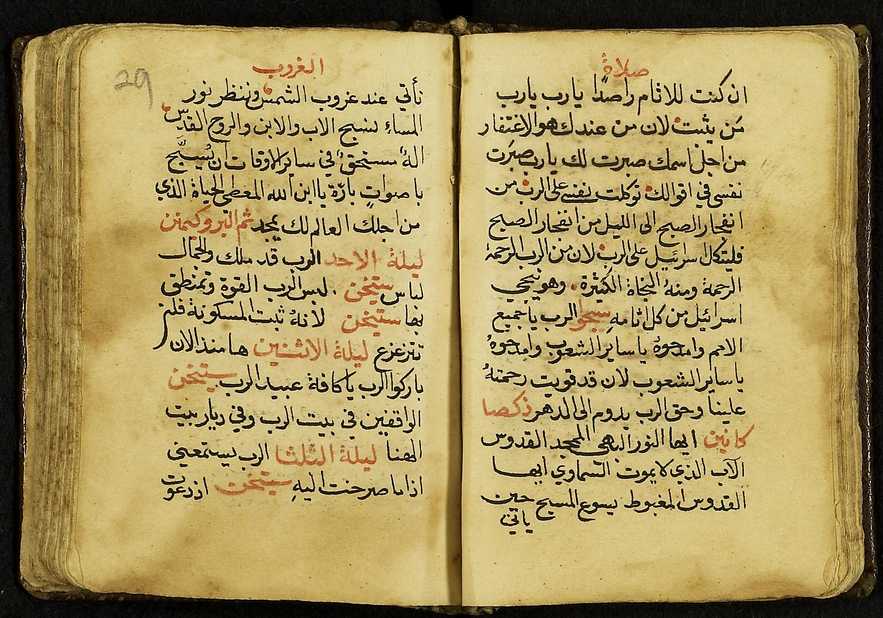 صلاة
ان كنت للاثام راصدًا يارب يارب
مَن يثبت لان من عندك هو الاغتفار
من اجل اسمك صبرت لك يارب صبَرت
نفسي في اقوالك توكلت نفسي على الرب من
انفجار الصبح الى الليل من انفجار الصبح
فليتكل اسرئيل على الرب لان من الرب الرحمة
الرحمة ومنهُ النجاة الكثيرة وهو ينجي
اسرائيل من كل اثامهِ سبحوا الرب يا جميع
الامم وامدحوهُ يا ساير الشعوب وامدحوهُ
يا ساير الشعوب لان قد قويت رحمتهُ
علينا وحق الرب يدوم الى الدهر ذكصا
كانين ايها النور البهي المجد القدوس
الآب الذي لا يموت السماوي ايها
القدوس المغبوط يسوع المسيح حين
ياتي
الغروب
29
نأتي عند غروب الشمس وننظر نور
المساءِ نسبح الاب والابن والروح القدس
الهٌ مستحق في ساير الاوقات ان يُسبَّح
باصواتٍ بارّة يا ابن الله المعطي الحياة الذي
من اجلك العالم لك يمجد ثم البروكيمنن
ليلة الاحد الرب قد ملك والجمال
لباس ستيخن لبس الرب القوة وتمنطق
بها ستيخن لانهُ ثبت المسكونة فلن
تتزعزع ليلة الاثنين ها منذ الان
باركوا الرب يا كافة عبيد الرب ستيخن
الواقفين في بيت الرب وفي ديار بيت
الهنا ليلة الثلثا الرب يستمعني
اذا ما صرخت اليهِ ستيخن اذ دعوت